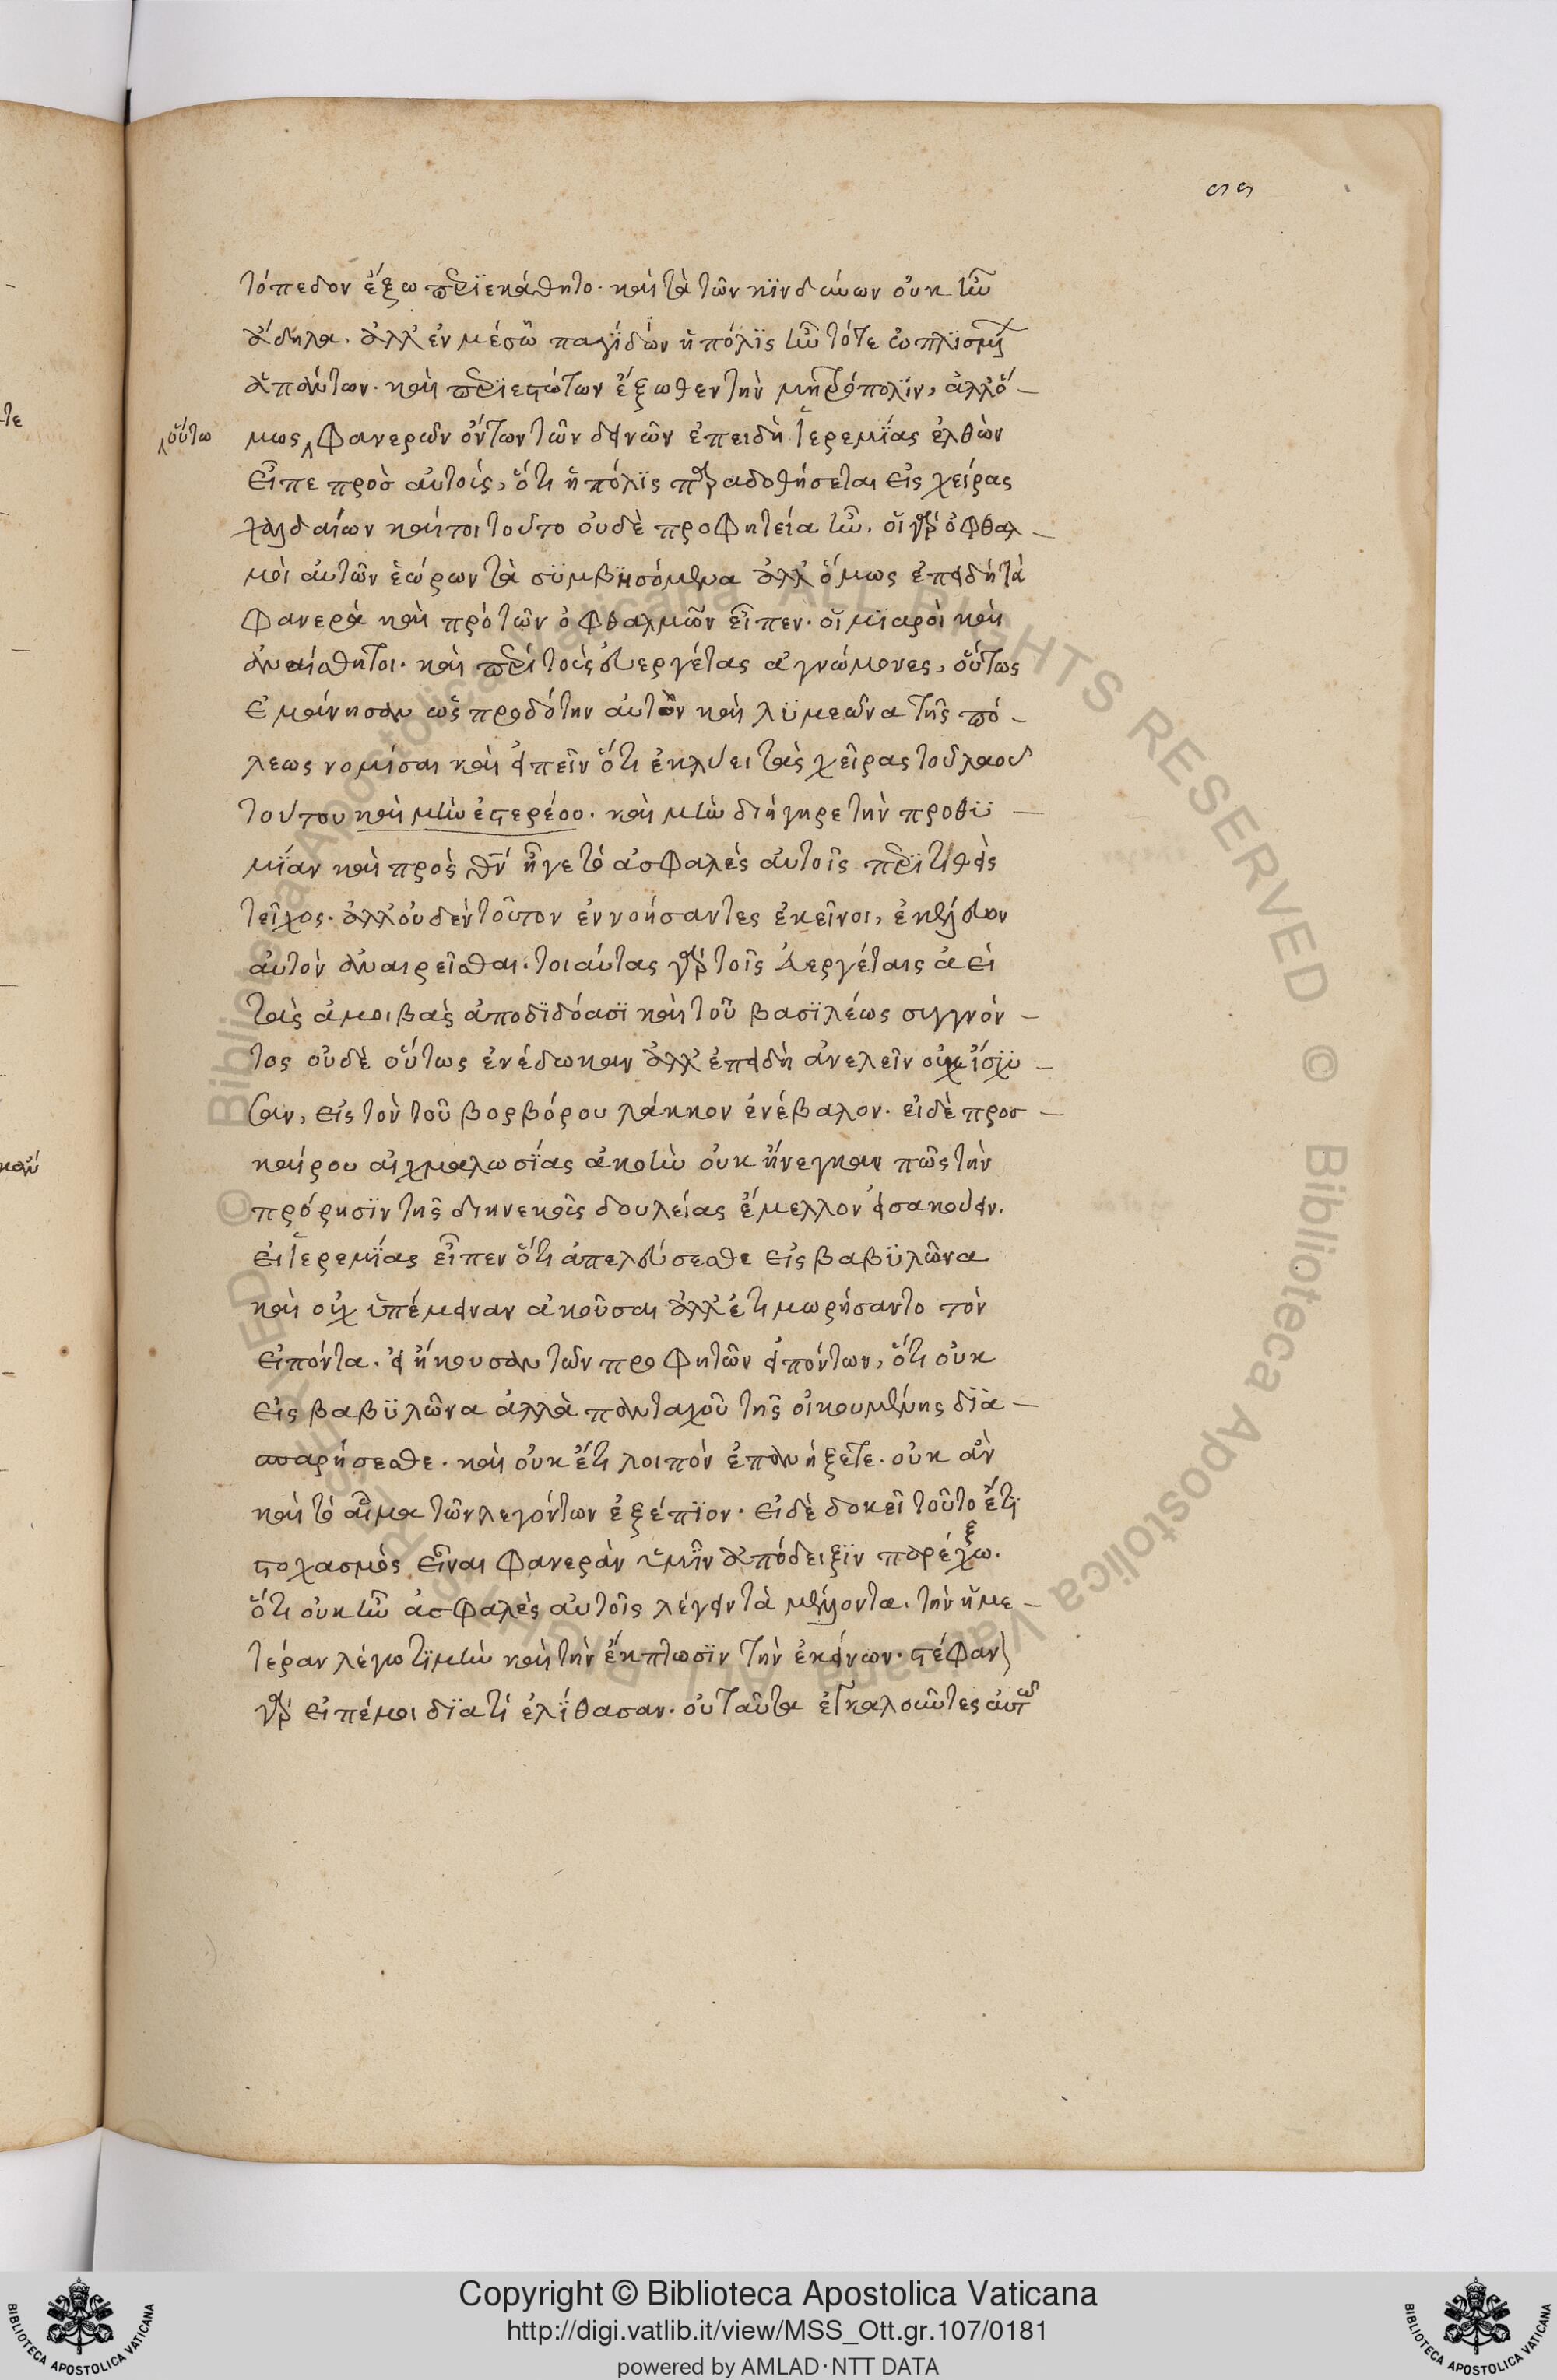 ϛϛ
τόπεδον ἔξω περϊεκάθητο. καὶ τὰ τῶν κϊνδύνων οὐκ ἦν
ἄδηλα. ἀλλ' ἐν μέσῳ παγΐδων ἡ πόλϊς ἦν τότε ὡπλϊσμένων
ἁπάντων. καὶ περϊεστώτων ἔξωθεν τὴν μητρόπολϊν, ἀλλ' ὅ-
οὕτω
μως φανερῶν ὄντων τῶν δεινῶν ἐπειδὴ Ἱερεμΐας ἐλθὼν
εἶπε πρὸσ αὐτοὺς, ὅτι ἡ πόλϊς παραδοθήσεται εἰς χεῖρας
χαλδαίων καίτοι τοῦτο οὐδὲ προφητεία ἦν. οἱ γὰρ ὀφθαλ-
μοὶ αὐτῶν ἑώρων τὰ σϋμβησόμενα ἀλλ' ὅμως ἐπειδὴ τὰ
φανερὰ καὶ πρὸ τῶν ὀφθαλμῶν εἶπεν. οἱ μϊαροὶ καὶ
ἀναίσθητοι. καὶ περὶ τοὺς εὐεργέτας ἀγνώμονες, οὕτως
ἐμάνησαν ὡς προδότην αὐτὸν καὶ λϋμεῶνα τῆς πό-
λεως νομίσαι καὶ εἰπεῖν ὅτι ἐκλύει τὰς χεῖρας τοῦ λαοῦ
τούτου καὶ μὴν ἐστερέου. καὶ μὴν διήγηρε τὴν προθϋ-
μΐαν καὶ πρὸς θν ἦγε τὸ ἀσφαλὲς αὐτοῖς περϊτιθεὶς
τεῖχος. ἀλλ' οὐδὲν τοῦτον ἐννοήσαντες ἐκεῖνοι, ἐκέλευον
αὐτὸν ἀναιρεῖσθαι. τοιαύτας γὰρ τοῖς εὐεργέταις ἀεὶ
τὰς ἀμοιβὰς ἀποδϊδόασϊ καὶ τοῦ βασϊλέως συγγνόν-
τος οὐδὲ οὕτως ἐνέδωκαν ἀλλ' ἐπειδὴ ἀνελεῖν οὐκ ἴσχυ-
σαν, εἰς τὸν τοῦ βορβόρου λάκκον ἐνέβαλον. εἰ δὲ προσ-
καίρου αἰχμαλωσΐας ἀκοὴν οὐκ ἤνεγκαν πῶς τὴν
πρόρησϊν τῆς διηνεκοῦς δουλείας ἔμελλον εἰσακούειν.
εἰ Ἱερεμΐας εἶπεν ὅτι ἀπελεύσεσθε εἰς βαβϋλῶνα
καὶ οὐχ ὑπέμειναν ἀκοῦσαι ἀλλ' ἐτιμωρήσαντο τὸν
εἰπόντα. εἰ ἤκουσαν τῶν προφητῶν εἰπόντων, ὅτι οὐκ
εἰς βαβϋλῶνα ἀλλὰ πανταχοῦ τῆς οἰκουμένης δϊα-
σπαρήσεσθε. καὶ οὐκ ἔτι λοιπὸν ἐπανήξετε. οὐκ ἂν
καὶ τὸ αἷμα τῶν λεγόντων ἐξέπϊον. εἰ δὲ δοκεῖ τοῦτο ἔτϊ
στοχασμὸς εἶναι φανερὰν ὑμῖν ἀπόδειξϊν παρέξω.
ὅτι οὐκ ἦν ἀσφαλὲς αὐτοῖς λέγειν τὰ μέλλοντα. τὴν ἡμε-
τέραν λέγω τϊμὴν καὶ τὴν ἔκπτωσϊν τὴν ἐκείνων. στέφανον
γὰρ εἰπέ μοι δϊατί ἐλΐθασαν. οὐ ταῦτα ἐγκαλοῦντες αὐτῷ